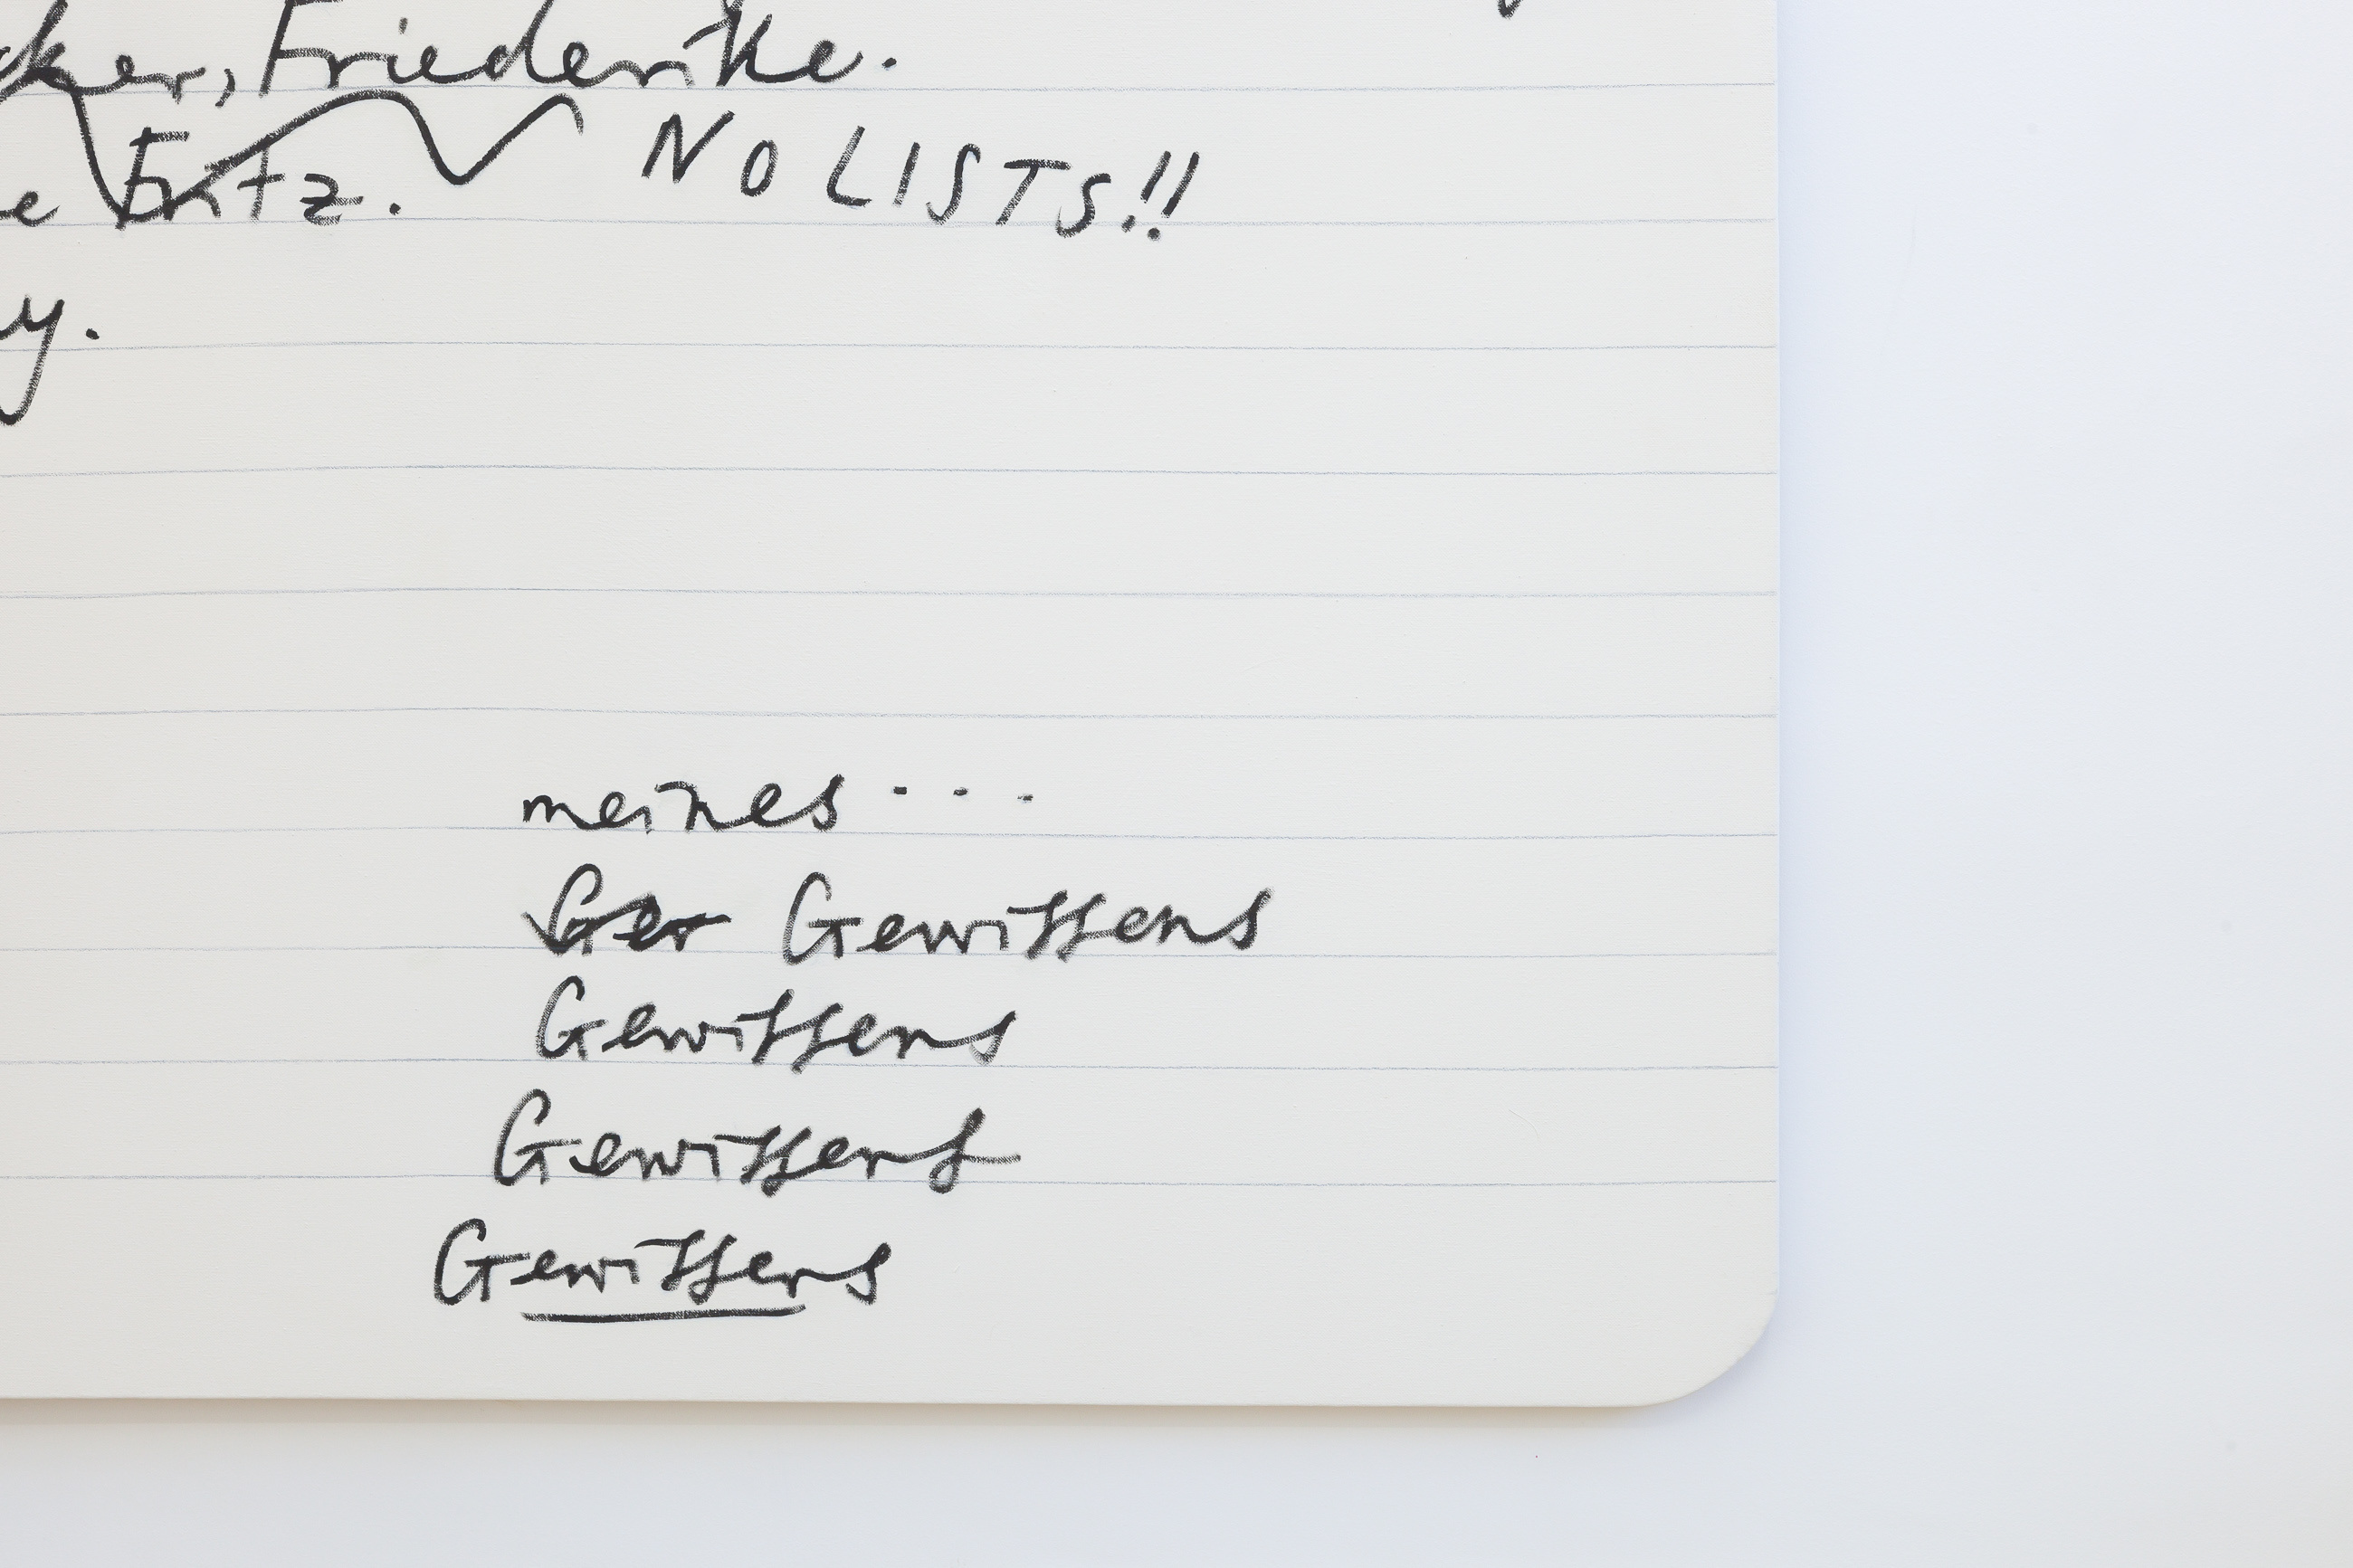 Friederike.
Fritz. NO LISTS!!
meines...
Ger Gewissens
Gewissens
Gewissens
Gewissens